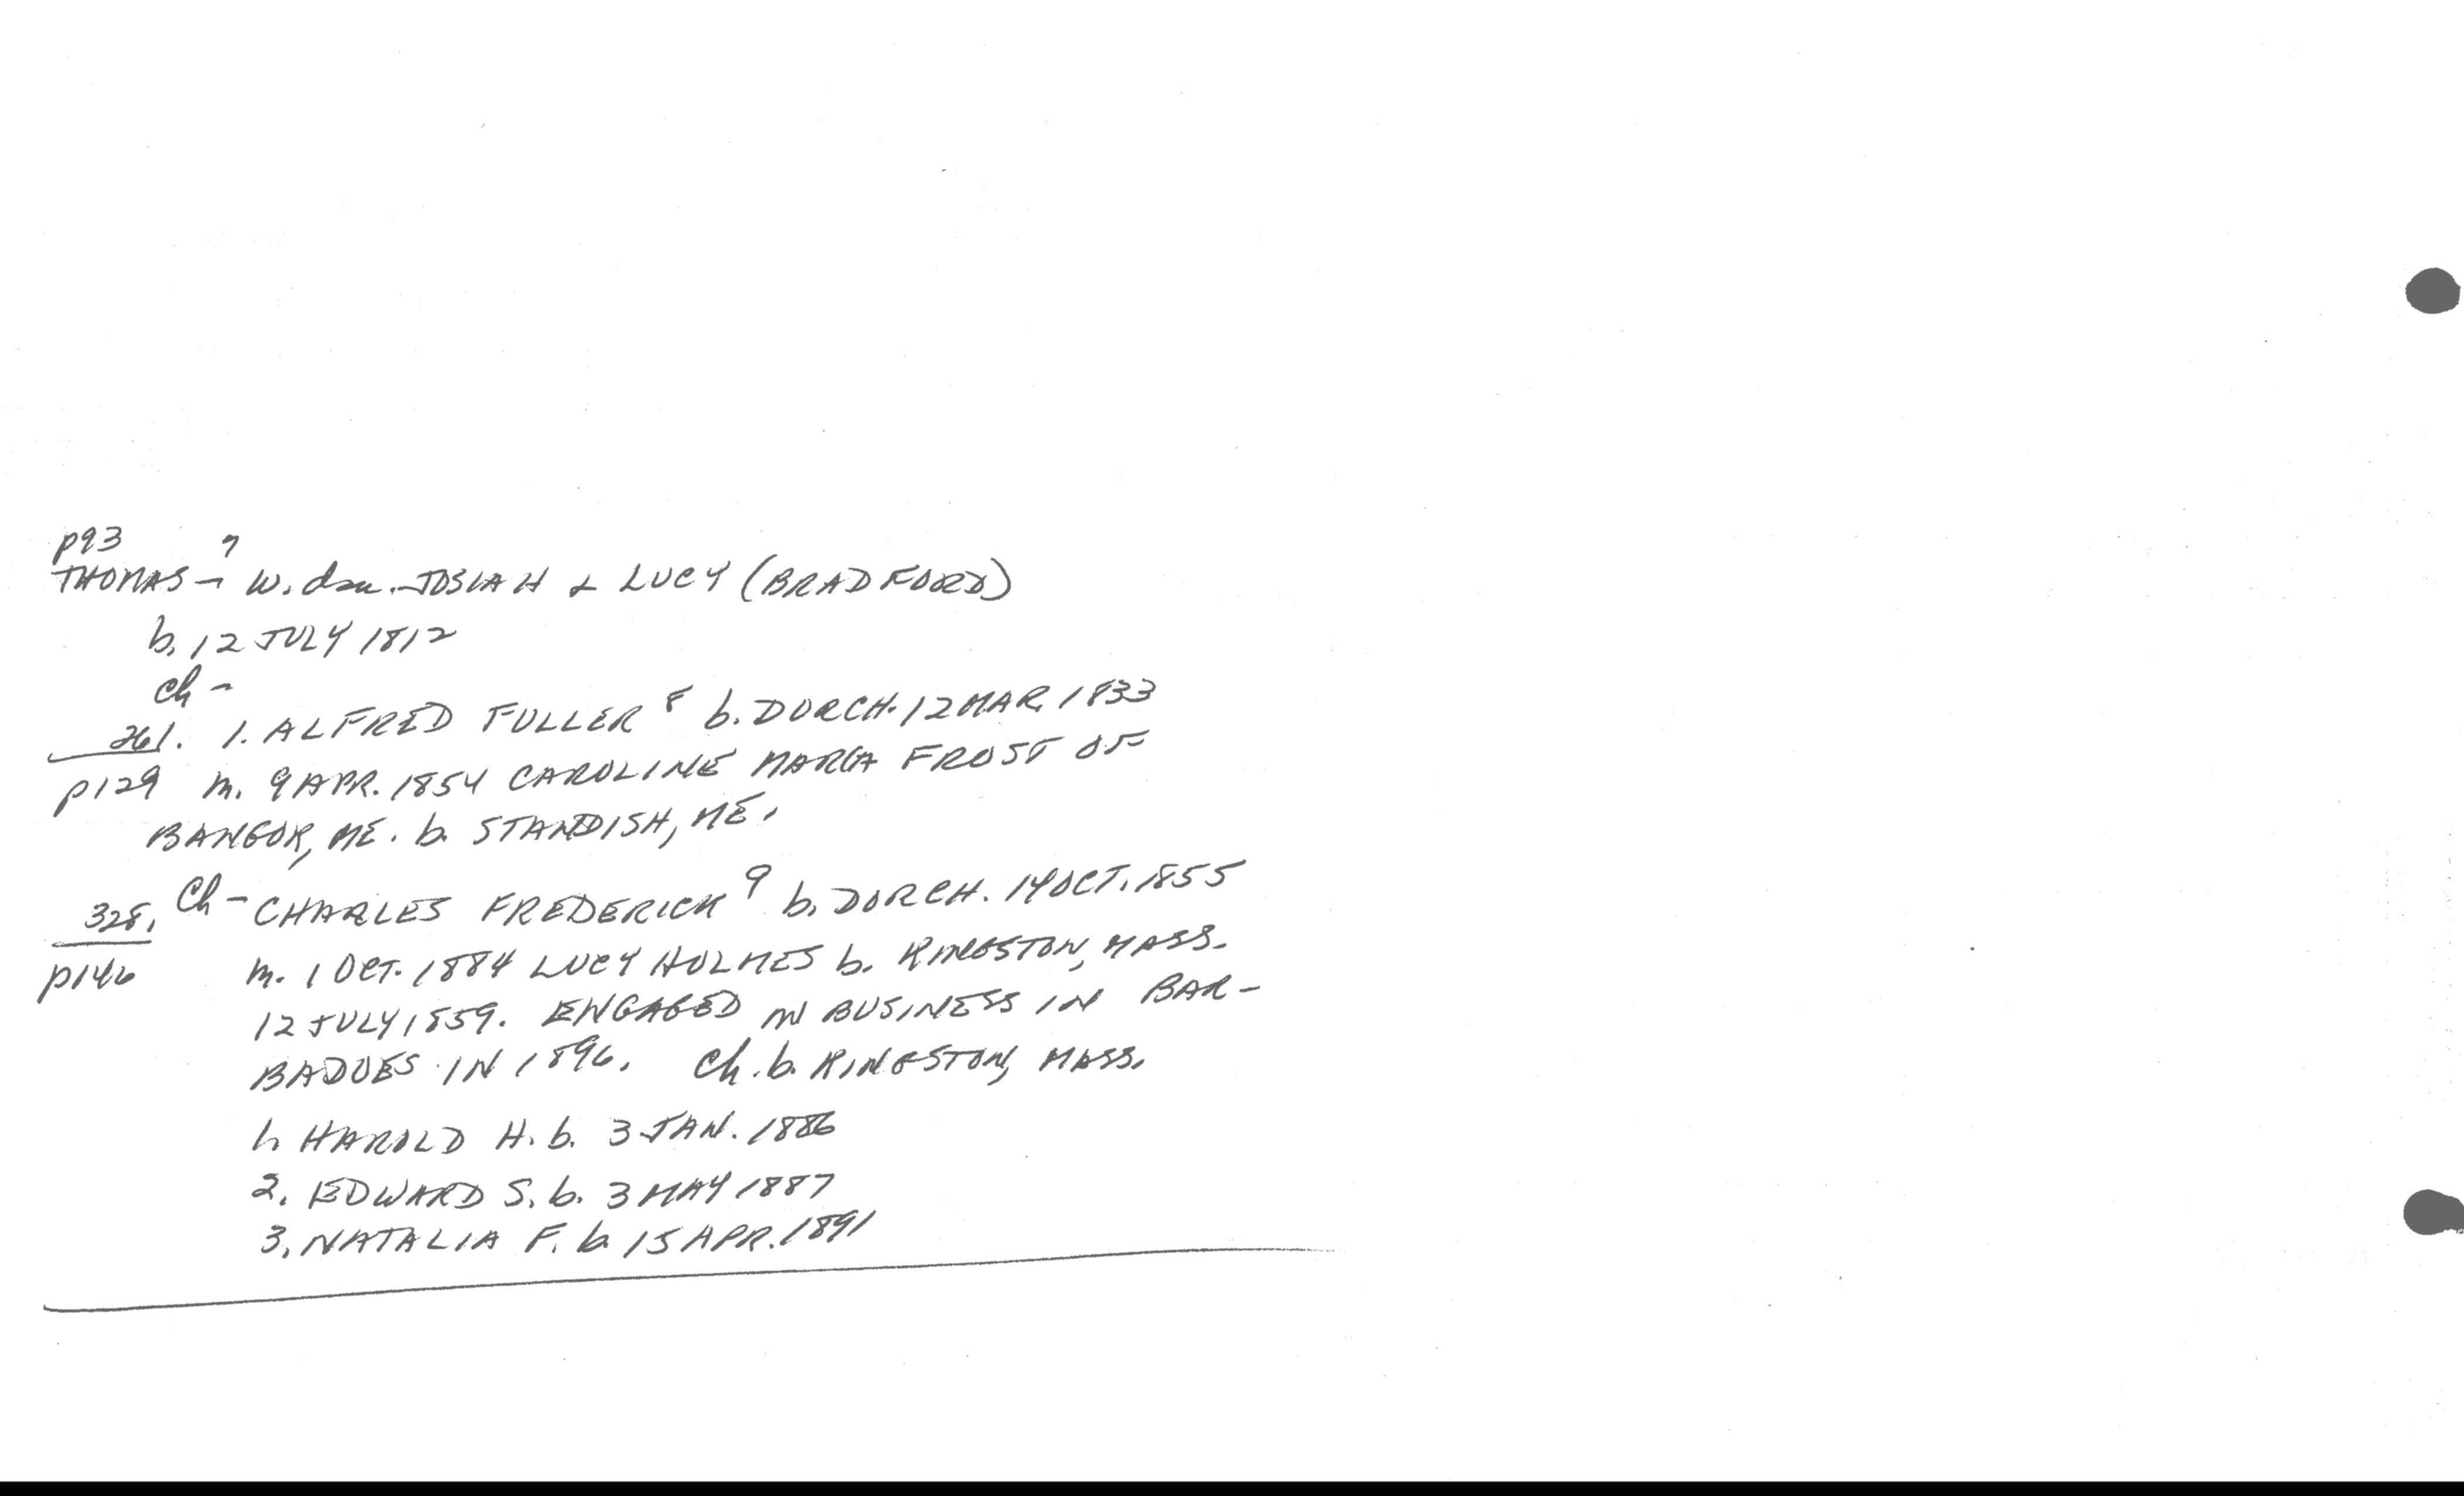 p93
THOMAS - 7 W. dau. JOSIAH & LUCY (BRADFORD)
b. 12 JULY 1812
Ch -
261. 1. ALFRED FULLER 8 b. DORCH. 12 MAR. 1833
p129 m. 9 APR. 1854 CAROLINE MARIA FROST OF
BANGOR, ME. b. STANDISH, ME.
328. Ch - CHARLES FREDERICK 9 b. DORCH. 14 OCT. 1855
p146 m. 1 OCT. 1884 LUCY HOLMES b. KINGSTON, MASS.
12 JULY 1859. ENGAGED IN BUSINESS IN BAR-
BADOES IN 1896. Ch. b. KINGSTON, MASS.
1. HAROLD H. b. 3 JAN. 1886
2. EDWARD S. b. 3 MAY 1887
3. NATALIA F. b. 15 APR. 1891